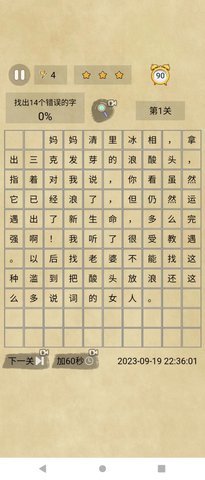 4
90
找出14个错误的字
0%
第1关
妈妈清里冰相，拿
出三克发芽的浪酸头，
指着对我说，你看虽然
它已经浪了，但仍然运
遇出了新生命，多么完
强啊！我听了很受教遇
。以后找老婆不能找这
种滥到把酸头放浪还这
么多说词的女人。
下一关
加60秒
2023-09-19 22:36:01